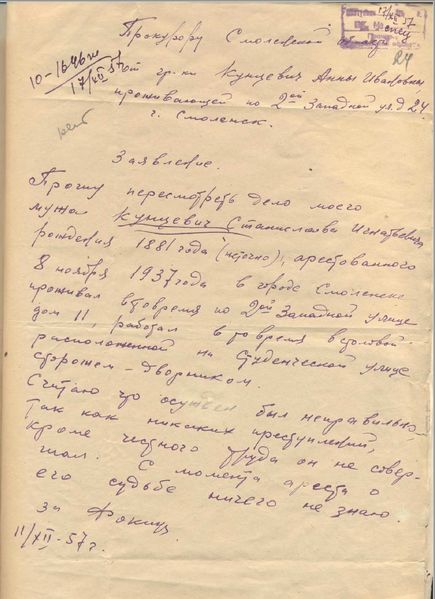 17/XII 57
Прокурору Смоленской области
24
10-1646ж
17/XII 57
от гр-ки Кунцевич Анны Ивановны
проживающей по 2ой Западной ул. д 24
г. Смоленск.
Заявление.
Прошу пересмотреть дело моего
мужа Кунцевич Станислава Игнатьевич
рождения 1881 года (неточно), арестованного
8 ноября 1937 года в городе Смоленске
проживал в то время по 2ой Западной улице
дом 11, работал в то время в столовой
расположенной на Студенческой улице
сторожем-дворником.
Считаю что осужден был неправильно,
так как никаких преступлений,
кроме честного труда он не совер-
шал. С момента ареста о
его судьбе ничего не знаю.
за
11/XII-57 г.